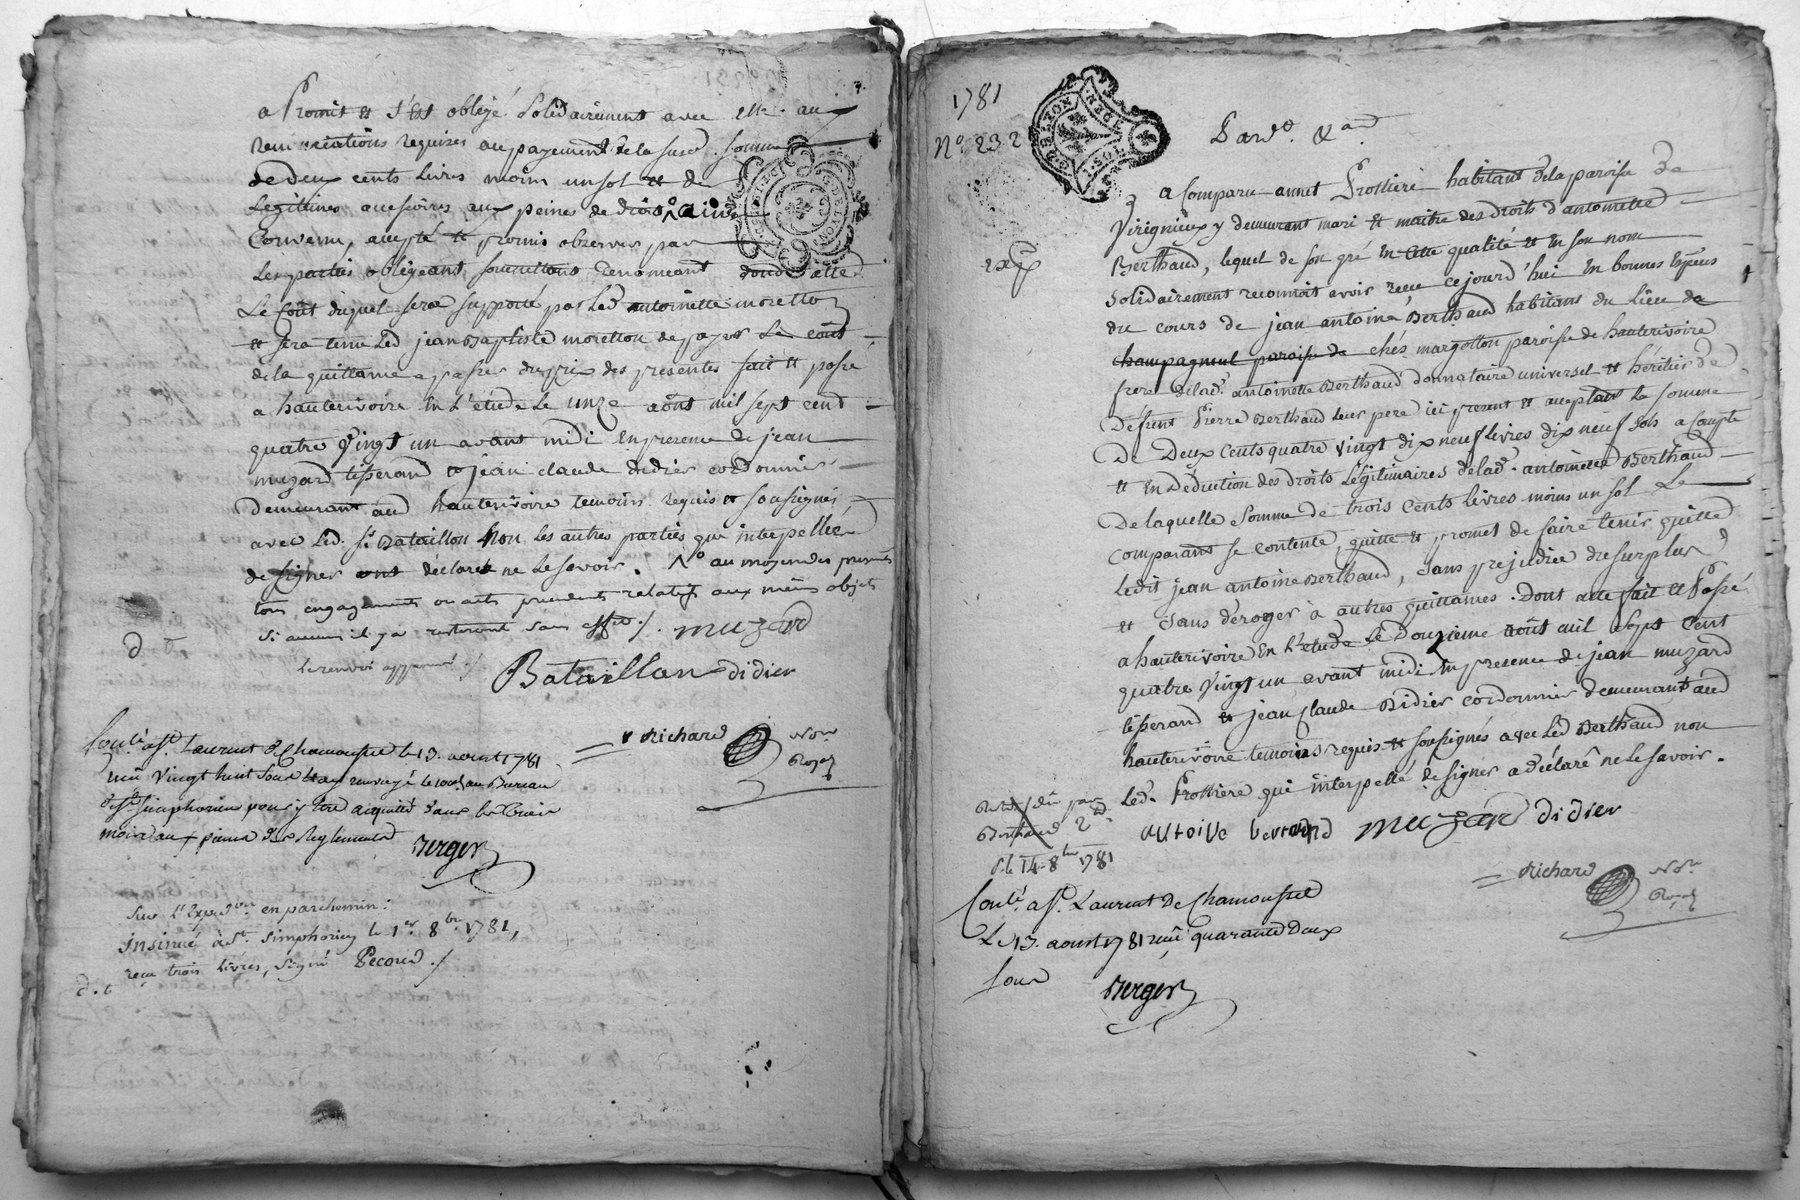 a Promis et s'est obligé solidairement avec elle aux
renonciations requises au payement de la susd. somme
de deux cents livres moins un sol et de
legitimes accessoires aux peines de droits, ainsi
convenu, accepté et promis observer par
les parties obligeant soumettant renonceant dont acte
Le coût duquel sera supporté par lad antoinette moretton
et sera tenu led jean Baptiste moretton de payer le coût
de la quittance a passer du prix des presentes fait et passé
a hauterivoire en l'etude le unze aoüt mil sept cent
quatre vingt un avant midi en presence de jean
muzard tisserand et jean claude didier cordonnier
demeurant aud hauterivoire temoins requis et soussignés
avec led. sr. Bataillon Non les autres parties qui interpellés
de signer ont déclaré ne le savoir. au moyen des presentes
tous engagements ou acts precedents relatifs aux mêmes objets
si aucuns il y a resteront sans effets /. muzard
le renvoi approuvé ./
Bataillon didier
Richard Nore
Royal
Conlé. a St. Laurent de Chamousset le 13. aoust 1781
reçu vingt huit sous renvoyé le au Bureau
de St. simphorien pour y être acquitté dans les trois
mois aux peines des Reglements
Berger
sur l'Expedon. en parchemin:
insinué à St. simphorien le 1er 8bre 1781,
reçu trois livres, signé Pecoud ./
d. t
1781
No. 232
Pardt. &a.
a Comparu annet Frottiere habitant de la paroisse de
Virignieux y demeurant mari et maitre des droits d'antoinette
Berthaud, lequel de son gré En cette qualité et en son nom
solidairement reconnoit avoir reçu ce jourd'hui En bonnes Espéces
du cours de jean antoine Berthaud habitant du Lieu de
champagneul paroisse de chés margotton paroisse de hauterivoire
frere de lad. antoinette Berthaud donnataire universel et héritier de
défunt Pierre Berthaud leur pere ici present et acceptant La somme
De Deux Cents quatre vingt dix neuf livres dix neuf sols a Compte
et en Déduction des droits Légitimaires de lad. antoinette Berthaud
De laquelle somme de trois cents livres moins un sol Le
comparant se contente, quitte et promet de faire tenir quitte
ledit jean antoine Berthaud, sans prejudice du surplus
et sans déroger à autres quittances. Dont acte fait et Passé
a hauterivoire en l'etude le Douzieme août mil sept cent
quatre vingt un avant midi En presence de jean muzard
tisserand et jean Claude Didier cordonnier demeurant aud
hauterivoire temoins requis et soussignés avec led Berthaud non
led. Frottiere qui interpellé de signer a déclaré ne le savoir.
du par
Berthaud 2d.
le 14 8bre 1781
antoine bertaud muzard didier
Richard Nore
Royal
Conlé. a St. Laurent de Chamousset
Le 13. aoust 1781 reçu quarante deux
sous
Berger